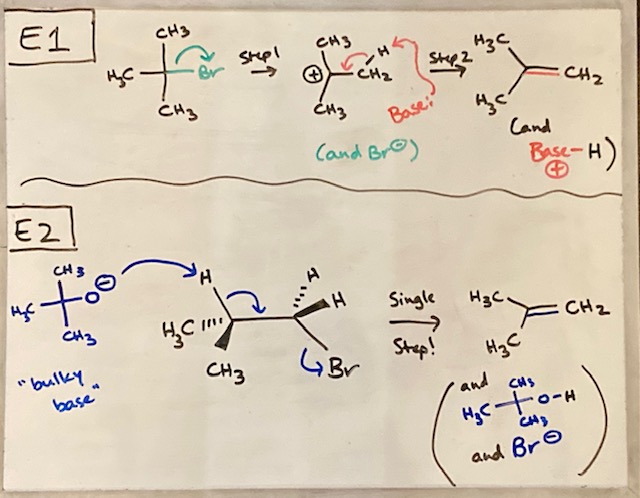 E1
CH3
H3C Br
CH3
Step 1
CH3 H
⊕ CH2
CH3
Base:
(and Br⊖)
Step 2
H3C
CH2
H3C
(and
Base-H)
⊕
E2
CH3 ⊖
H3C O
CH3
"bulky
base"
H H
H
H3C
CH3 Br
Single
Step!
H3C
CH2
H3C
(and
CH3
H3C O-H
CH3
and Br⊖)